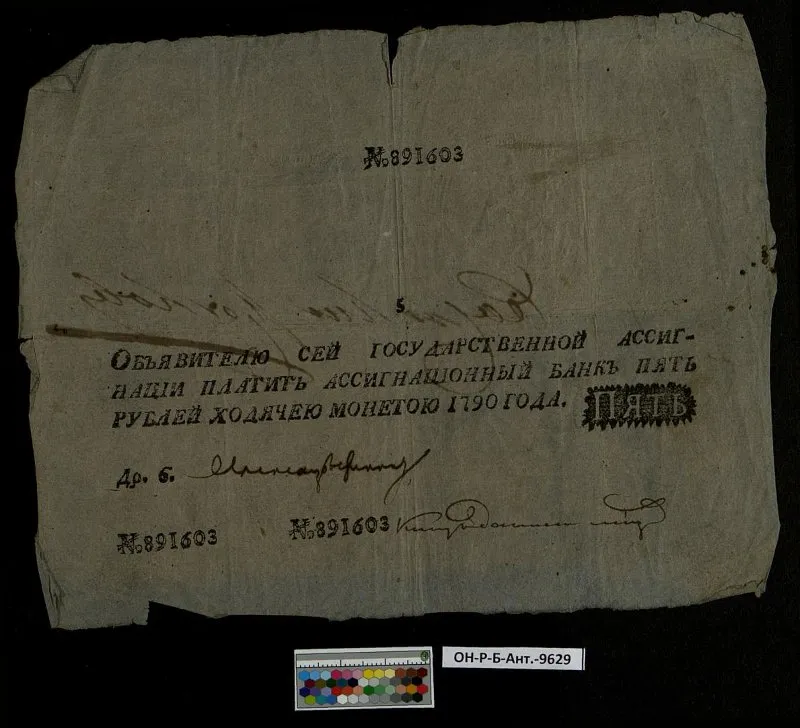 №891603
5
ОБЪЯВИТЕЛЮ СЕЙ ГОСУДАРСТВЕННОЙ АССИГ-
НАЦІИ ПЛАТИТЪ АССИГНАЦІОННЫЙ БАНКЪ ПЯТЬ
РУБЛЕЙ ХОДЯЧЕЮ МОНЕТОЮ 1790 ГОДА. ПЯТЬ
Др. 6.
№891603 №891603
ОН-Р-Б-Ант.-9629